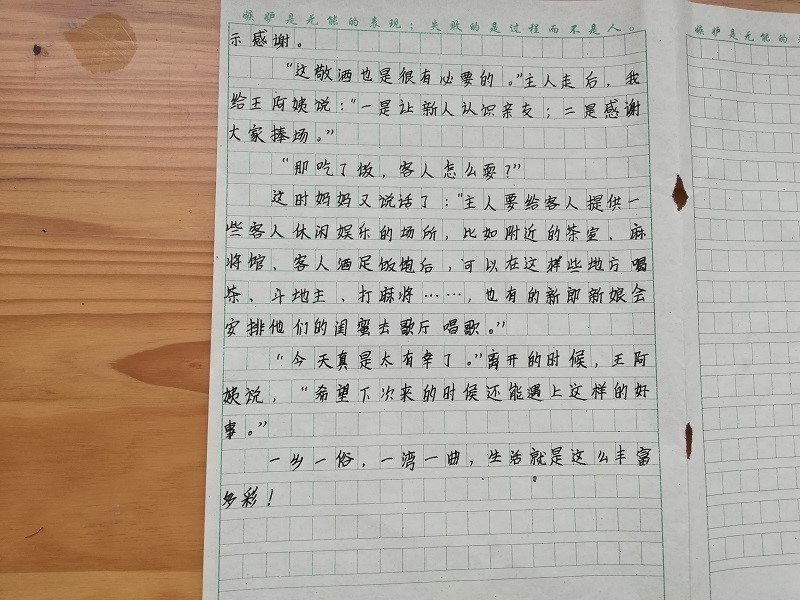 嫉妒是无能的表现；失败的是过程而不是人。
嫉妒是无能的
示感谢。
“这敬酒也是很有必要的。”主人走后，我
给王阿姨说：“一是让新人认识亲友；二是感谢
大家捧场。”
“那吃了饭，客人怎么耍？”
这时妈妈又说话了：“主人要给客人提供一
些客人休闲娱乐的场所，比如附近的茶室、麻
将馆、客人酒足饭饱后，可以在这样些地方喝
茶、斗地主、打麻将……，也有的新郎新娘会
安排他们的闺蜜去歌厅唱歌。”
“今天真是太有幸了。”离开的时候，王阿
姨说，“希望下次来的时候还能遇上这样的好
事。”
一乡一俗，一湾一曲，生活就是这么丰富
多彩！